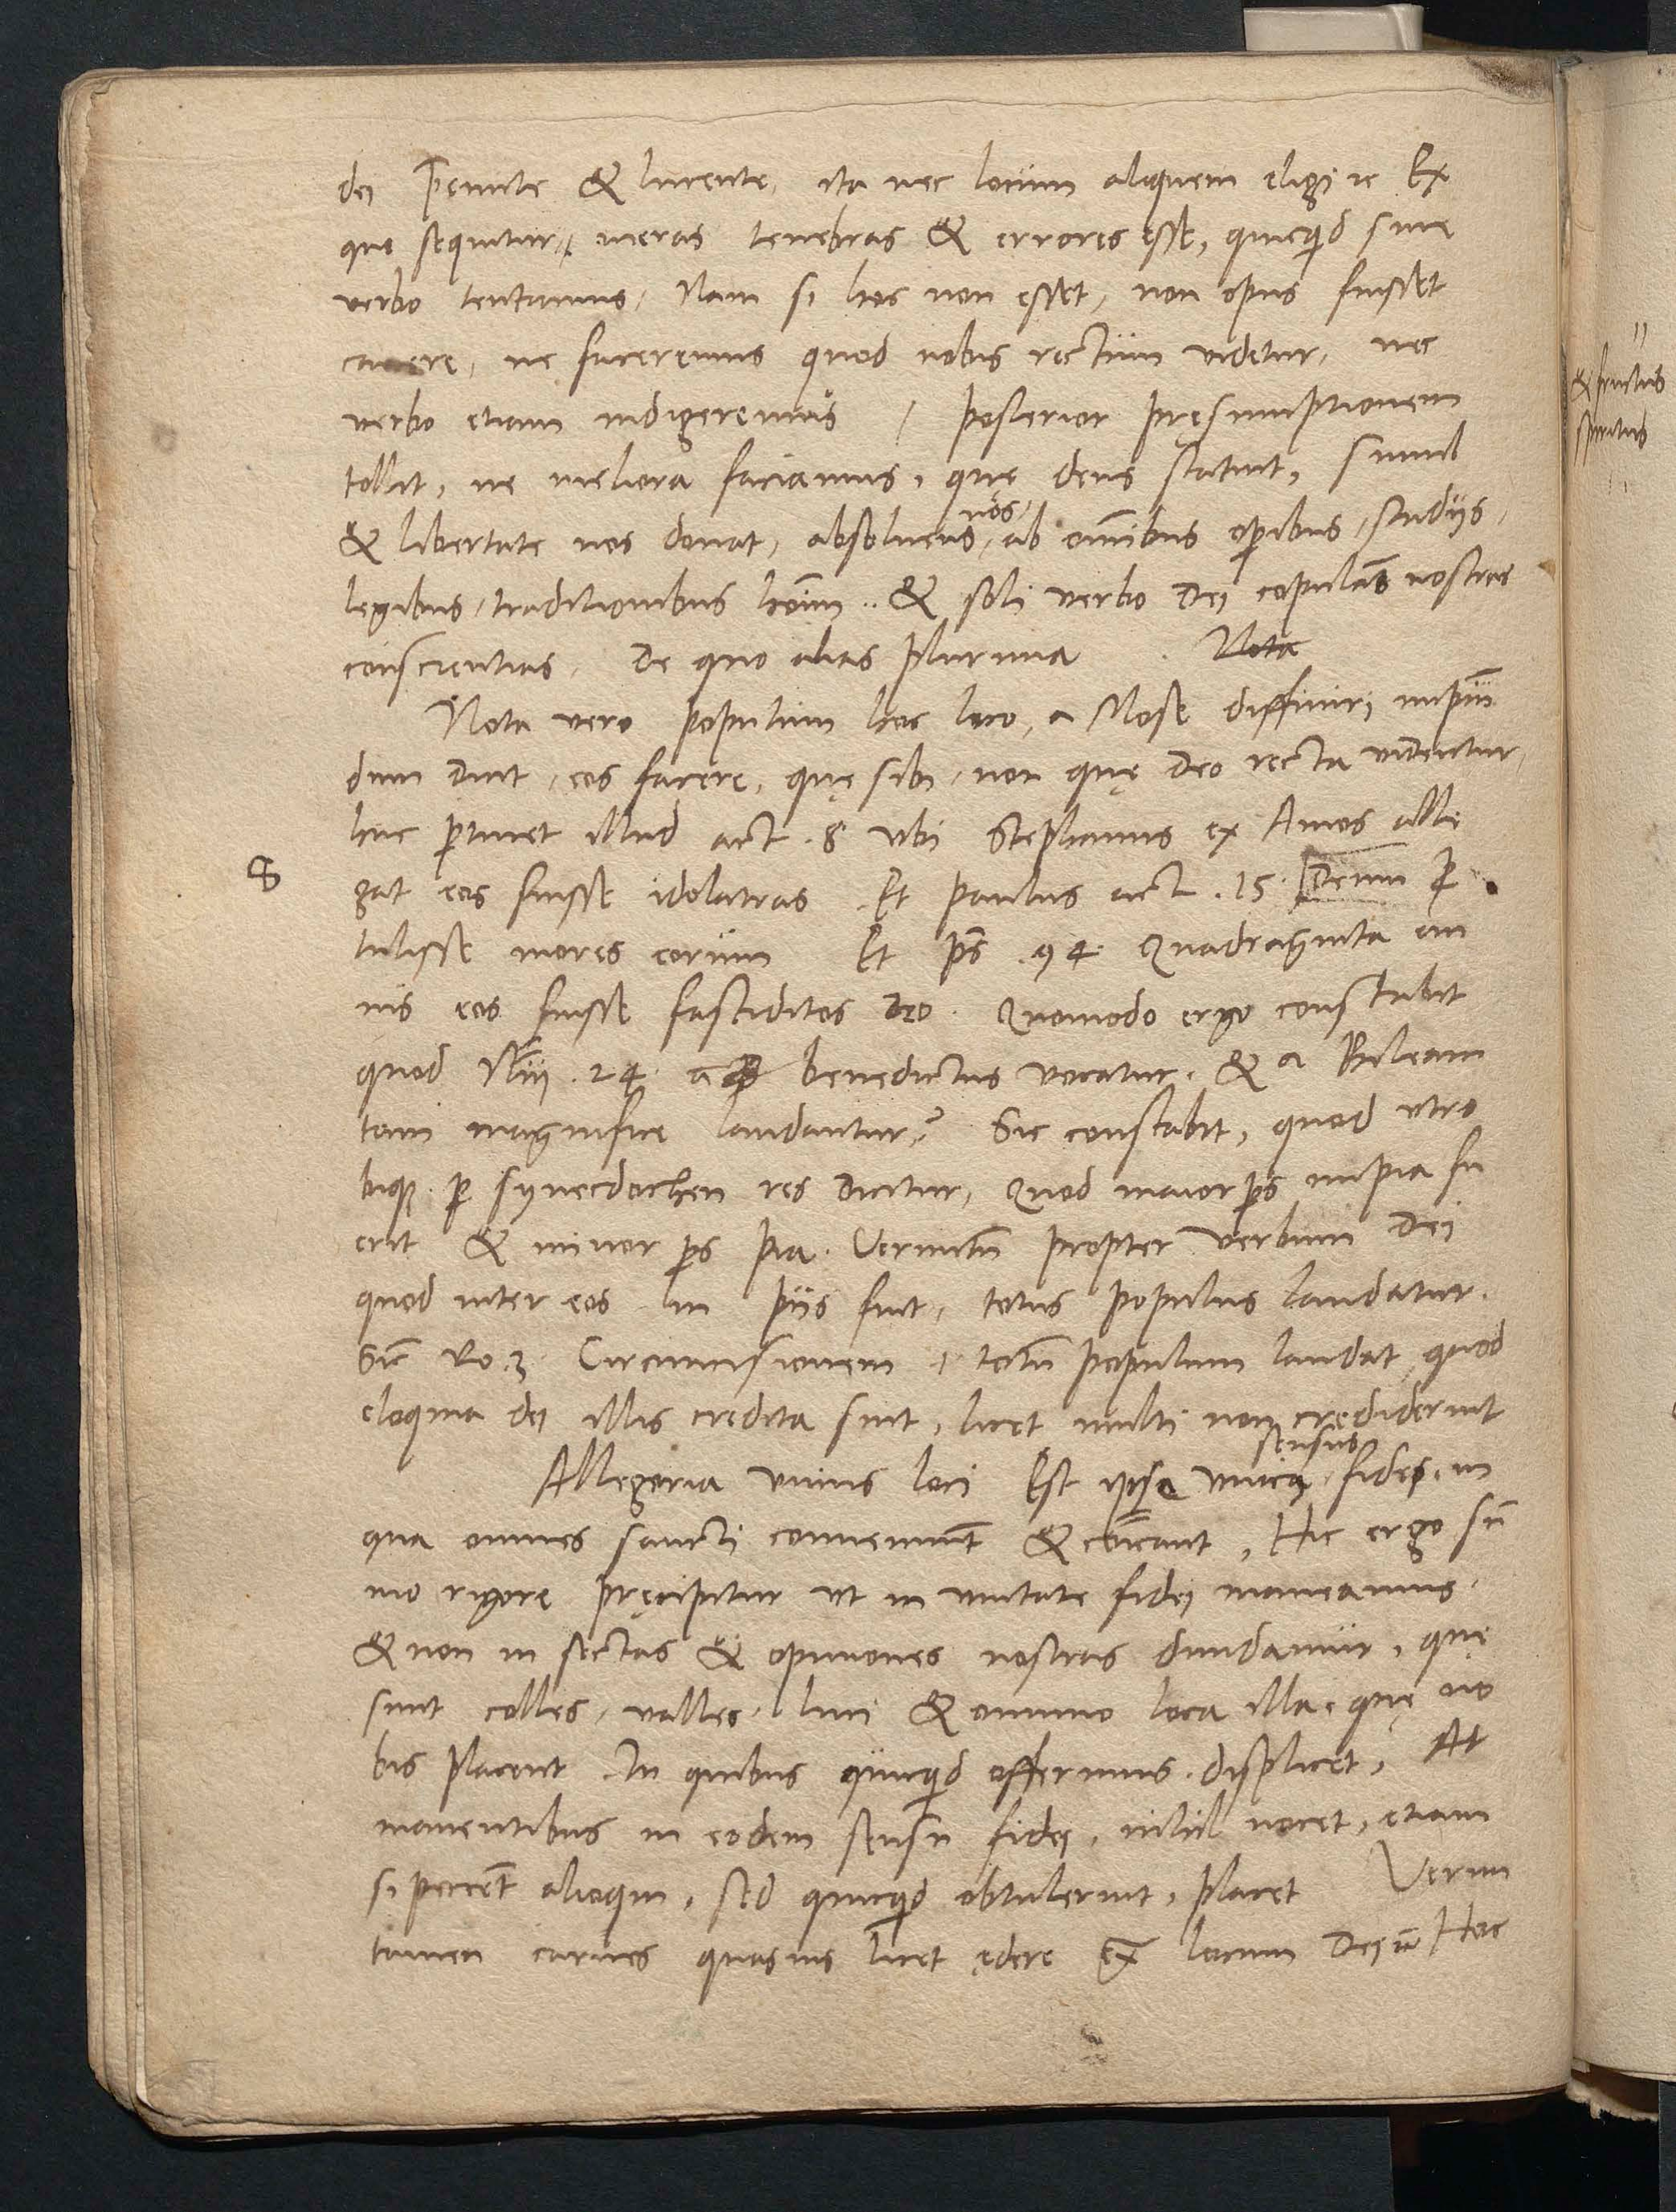 dei preeunte & lucente, ita nec locum aliquem eligere Ex
quo sequitur, meras tenebras & errores esse, quicquid sine
verbo tentamus, Nam si hoc non esset, non opus fuisset
cavere, ne faceremus quod nobis rectum videtur, nec
verbo etiam indigeremus / posterior pręsumptionem
tollit, ne meliora faciamus, quę deus statuit, simul
& libertate nos donat, absoluens nos, ab omibus opibus, studijs,
legibus, traditionibus hoim .. & soli verbo Dei copulans nostras
conscientias, De quo alias plurima . Nota
Nota vero populum hoc loco, a Mose diffiniri impium
dum dicit, eos facere, quę sibi, non quę Deo recta videntur,
huc ptinet illud act . 8 vbi Stephanus ex Amos alle
8
gat eos fuisse idolatras . Et paulus act . 15 . Deum p
tulisse mores eorum Et ps . 94 . Quadraginta an
nis eos fuisse fastiditos Deo . Quomodo ergo constabit
quod Nu . 24 . benedictus vocatur . & a Bileam
tam magnifice laudantur? Sic constabit, quod vtro
bique p synecdochen res dicitur, Quod maior ps impia fu
erit & minor ps pia . Verumtn propter verbum Dei
quod inter eos in pijs fuit, totus populus laudatur .
Sic Ro . 3 Circumcisionem i totum populum laudat, quod
eloquia dei illis credita sint, licet multi non crediderint
Allegoria vnius loci Est ipse vnicus sensus fidei, in
qua omnes sancti conueniunt & coicant, Hic ergo sū
mo rigore pręcipitur vt in vnitate fidei maneamus .
& non in sectas & opiniones nostras diuidamur, quę
sunt colles, valles, luci & omnino loca illa, quę no
bis placent . In quibus quicquid offerimus . displicet, At
manentibus in eodem sensu fidei, nihil nocet, etiam
si peccent alioqui, sed quicquid obtulerint, placet Verum
tamen carnes quasuis licet edere Ex locum Dei Hoc
& fructus
spiritus